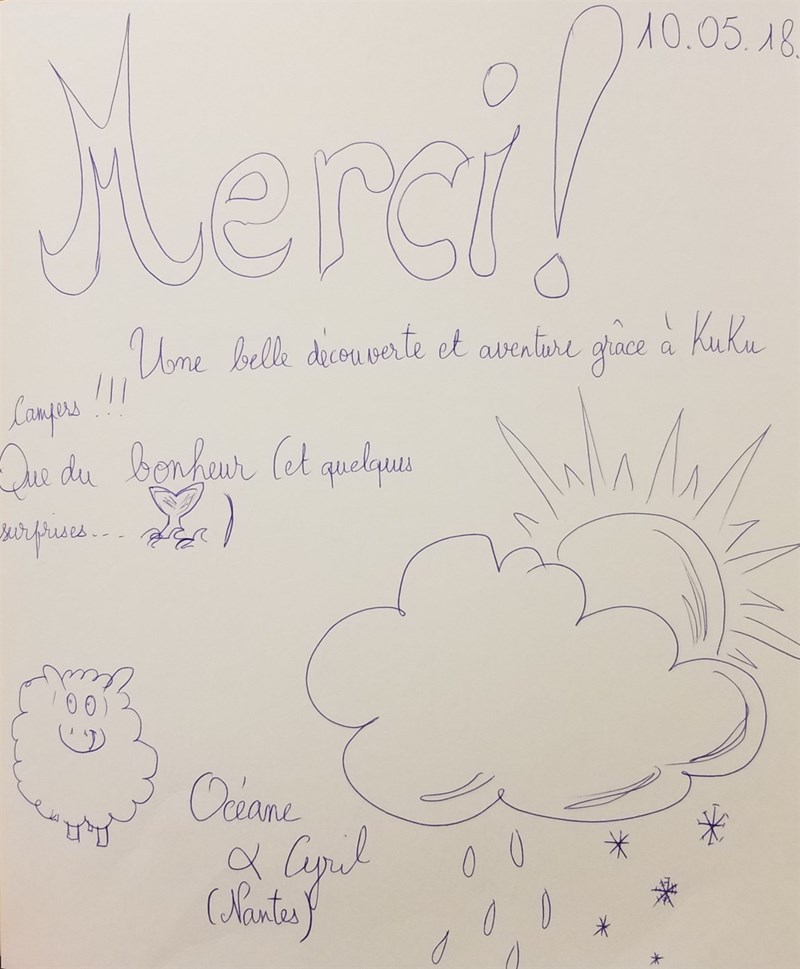 10.05.18.
Merci!
Une belle découverte et aventure grâce à KuKu
Campers !!!
Que du bonheur (et quelques
surprises... )
Océane
& Cyril
(Nantes)